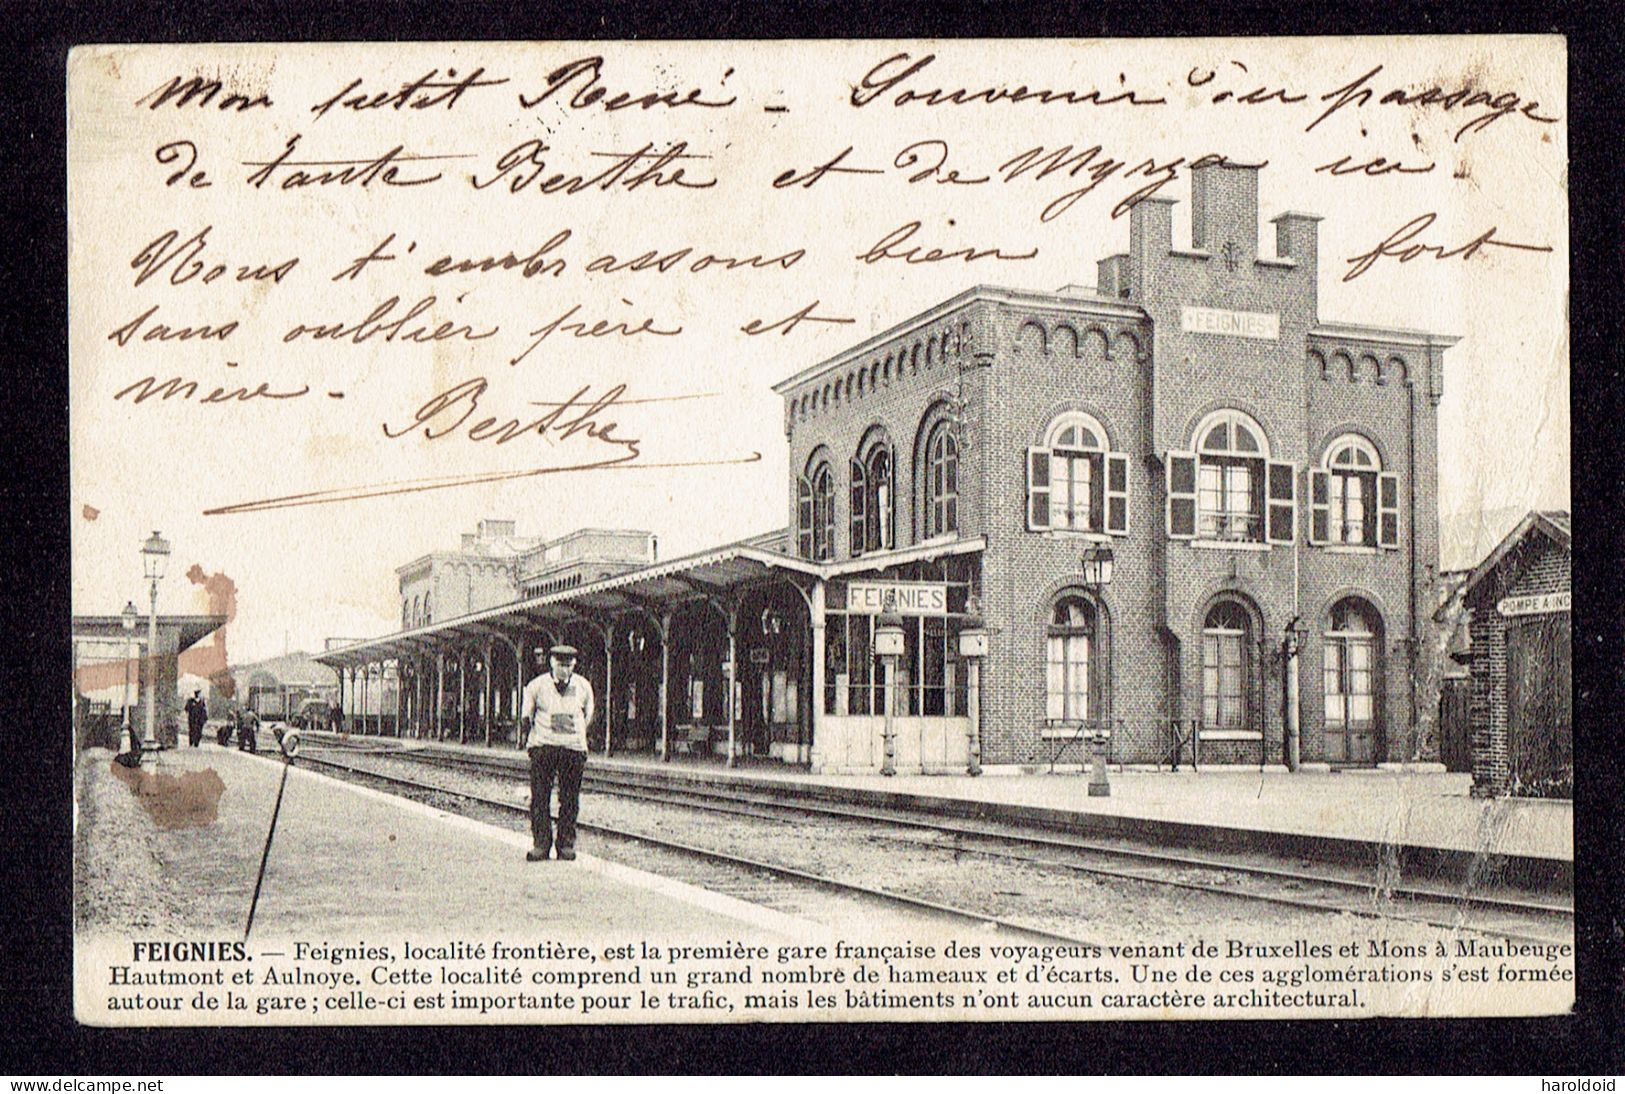 Mon petit René - Souvenir du passage
de tante Berthe et de Myrza ici
Nous t'embrassons bien fort
sans oublier père et
mère -
Berthe
FEIGNIES
FEIGNIES
POMPE A INC
FEIGNIES. — Feignies, localité frontière, est la première gare française des voyageurs venant de Bruxelles et Mons à Maubeuge
Hautmont et Aulnoye. Cette localité comprend un grand nombre de hameaux et d'écarts. Une de ces agglomérations s'est formée
autour de la gare ; celle-ci est importante pour le trafic, mais les bâtiments n'ont aucun caractère architectural.
www.delcampe.net
haroldoid